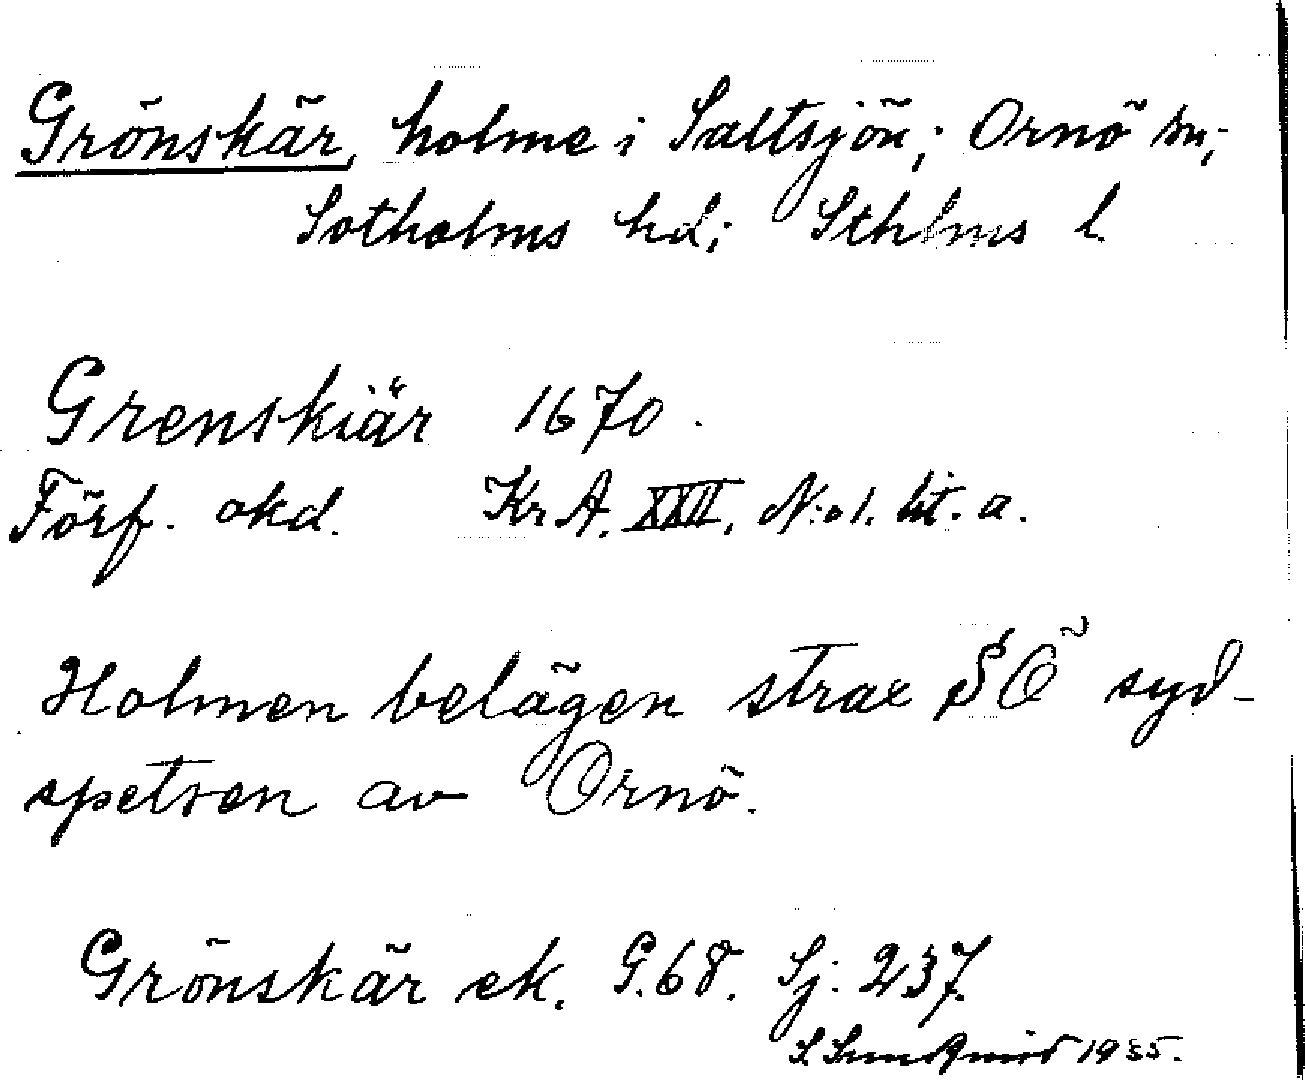 Grönskär, holme i Saltsjön; Ornö sn;
Sotholms hd; Sthlms l.
Grenskiär 1670.
Förf. okd. Kr A. XXII. N:o 1. lit. a.
Holmen belägen strax SÖ syd-
spetsen av Ornö.
Grönskär ek. G.68. Sj: 237.
S. 1935.